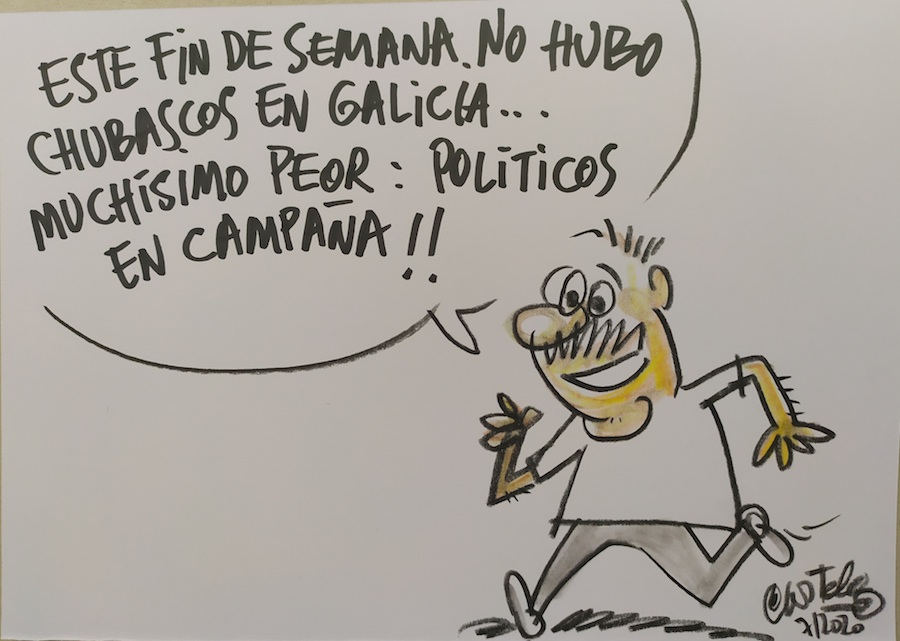 ESTE FIN DE SEMANA. NO HUBO
CHUBASCOS EN GALICIA...
MUCHÍSIMO PEOR: POLÍTICOS
EN CAMPAÑA!!
7/2020